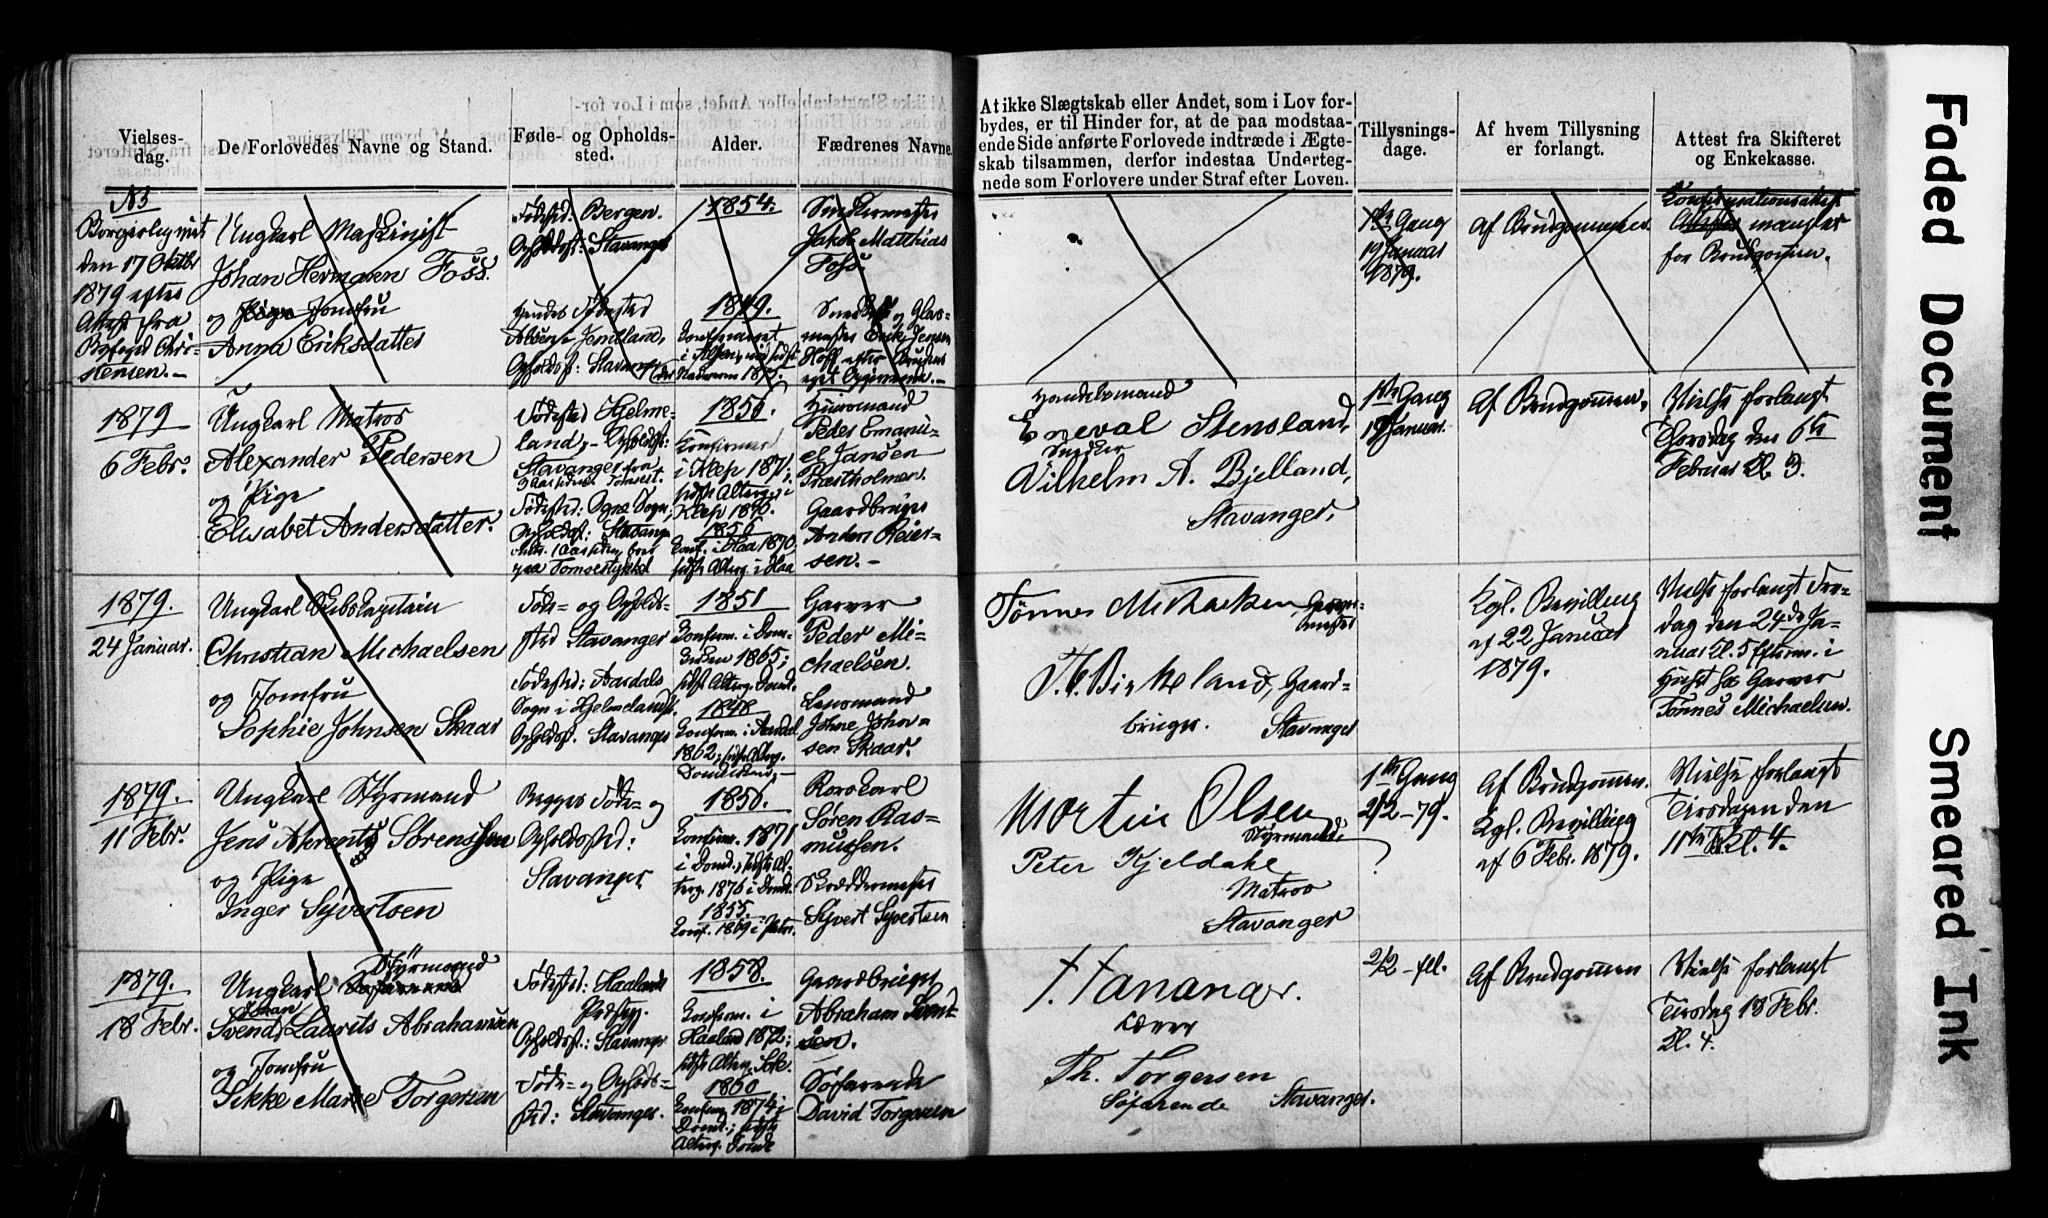 Vielses-
dag.
De Forlovedes Navne og Stand.
Føde- og Opholds-
sted.
Alder.
Fædrenes Navne
N3
Borgerlig viet
den 17 Oktbr
1879 efter
Attest fra
Byfoged Chri-
stensen.-
Ungkarl Maskinist
Johan Hermann Foss.
og Pige Jomfru
Anna Eriksdatter
Fødested: Bergen.
Opholdsst: Stavanger
hendes Fødested
Alsen Jemtland,
Opholdsst: Stavanger
1854.
1849.
Konfirmeret
i Alsen,
Snedkermester
Jakob Matthias
Foss.
og Glas-
mester Erik Jensen
Hoff efter Brudens
eget Opgivende.-
1879
6 Febr.
Ungkarl Matros
Alexander Pedersen
og Pige
Elisabet Andersdatter.
Fødested Hjelme-
land,- Opholdsst:
Stavanger fra
Fødested: Ogne Sogn,
Opholdsst: Stavanger
1856.
Konfirmeret
i Klep 1871;
sidst Alterg. i
Klep 1876.
1856
Konf. i Haa 1870,
sidst Alterg. i Haa
Huusmand
Peder Emanu-
el Jansen
Præstholmen.
Gaardbruger
Anders Reier-
sen.-
1879.
24 Januar.
Ungkarl Skibskaptain
Christian Michaelsen
og Jomfru
Sophie Johnsen Skaar
Føde- og Opholds-
sted Stavanger
Fødested: Aardals
Sogn i Hjelmelands.
Opholdsst. Stavanger
1851
Konfirm. i Dom-
kirken 1865;
sidst Alterg. Domk.
1848
Konfirm. i Aardal
1862; sidst Alterg.
Domkirken,-
Garver
Peder Mi-
chaelsen.
Lensmand
Johne John-
sen Skaar.
1879.
11 Febr.
Ungkarl Styrmand
Jens Ahrentz Sørenssen
og Pige
Inger Syvertsen
Begges Føde- og
Opholdssted:
Stavanger
1856.
Konfirm. 1871
i Domk., sidst Al-
terg. 1876 i Domk.
1855.
Konf. 1869 i Petri.
Rorskarl
Søren Ras-
mussen.
Skræddermester
Syvert Syvertsen
1879.
18 Febr.
Styrmand
Ungkarl
Johan
Svend Laurits Abrahamsen
og Jomfru
Sikke Marie Torgersen
Fødested: Haalands
Præsteg.
Opholdsst: Stavanger
Føde- og Opholds-
sted: Stavanger.
1858.
Konfirm. i
Haaland 1872;
sidst Alterg. i Sole.
1860
Konfirm. 1874 i
Domk.; sidst
Alterg. Domk
Gaardbruger
Abraham Svend-
sen.
Søfarende
David Torgersen
At ikke Slægtskab eller Andet, som i Lov for-
bydes, er til Hinder for, at de paa modstaa-
ende Side anførte Forlovede indtræde i Ægte-
skab tilsammen, derfor indestaa Underteg-
nede som Forlovere under Straf efter Loven.
Tillysnings-
dage.
Af hvem Tillysning
er forlangt.
Attest fra Skifteret
og Enkekasse.
1ste Gang
19 Januar
1879.
Af Brudgommen
Konfirmationsattest
Attester mangler
for Brudgommen.
Handelsmand
Eneval Stensland,
Snedker
Vilhelm A. Bjelland,
Stavanger,
1ste Gang
19 Januar.
Af Brudgommen,
Vielse forlangt
Thorsdag den 6te
Februar Kl. 3.
Tønnes Michaelsen Garver-
mester
T. Birkeland, Gaard-
bruger. Stavanger
Kgl. Bevilling
af 22 Januar
1879.
Vielse forlangt Fre-
dag den 24de Ja-
nuar Kl. 5 Efterm. i
Huset hos Garver
Tönnes Michaelsen.
Martin Olsen
Styrmand.
Peter Kjeldahl
Matros
Stavanger
1ste Gang
2/2-79.
?
Af Brudgommen.
Kgl. Bevilling
af 6 Febr. 1879.
Vielse forlangt
Tirsdagen den
11te Kl. 4.
T. Tananger.
Lærer
Th. Torgersen
Søfarende Stavanger.
2/2
Af Brudgommen
Vielse forlangt
Tirsdag 18 Febr.
Kl. 4.
Faded Document
Smeared Ink